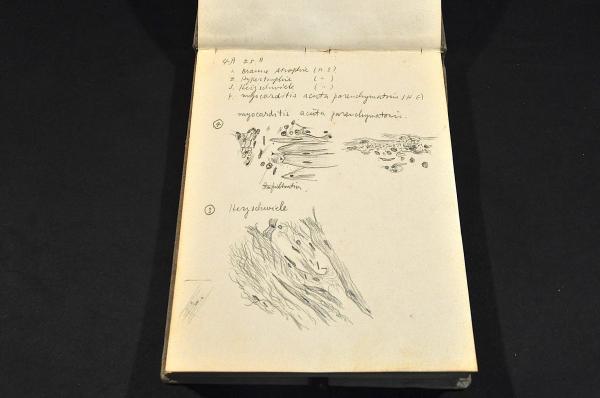 4月25日
1. Braune Atrophie (H.E)
2. Hypertrophie (〃)
3. Herzschwiele (〃)
4. myocarditis acuta parenchymatosis (H.E)
myocarditis acuta parenchymatosis.
④
③ Herzschwiele